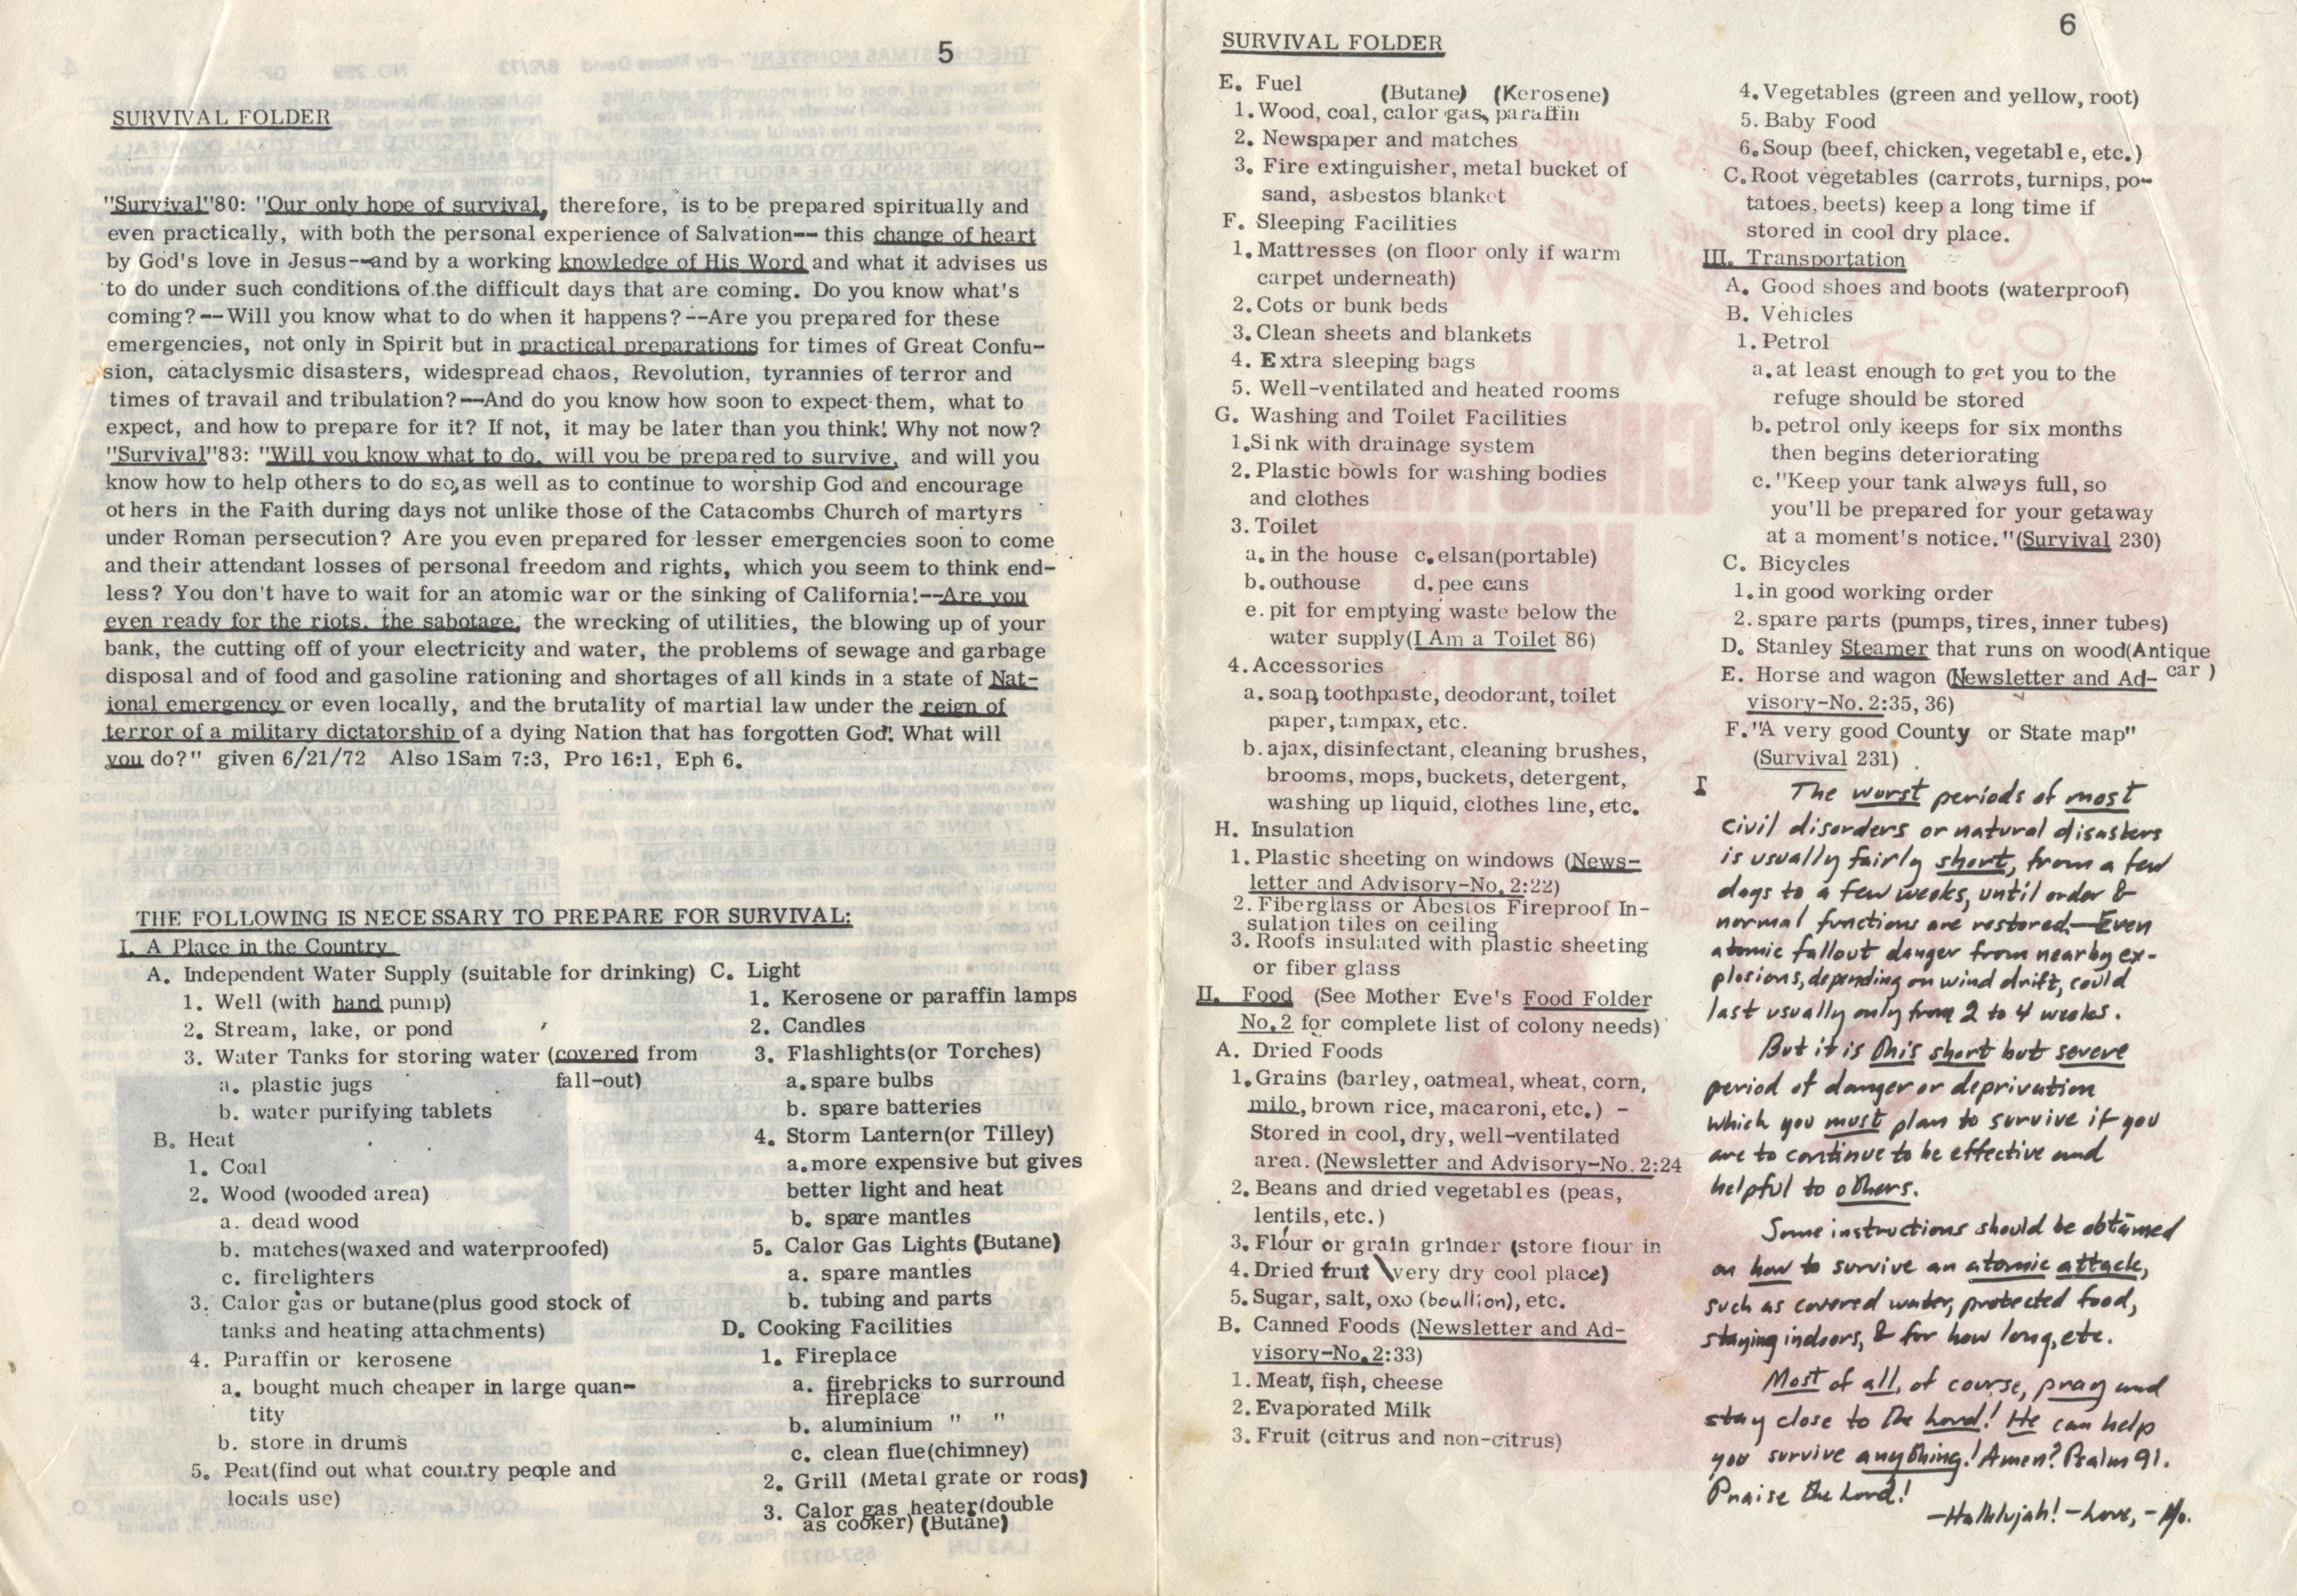 5
SURVIVAL FOLDER
"Survival"80: "Our only hope of survival, therefore, is to be prepared spiritually and
even practically, with both the personal experience of Salvation-- this change of heart
by God's love in Jesus--and by a working knowledge of His Word and what it advises us
to do under such conditions of the difficult days that are coming. Do you know what's
coming?--Will you know what to do when it happens?--Are you prepared for these
emergencies, not only in Spirit but in practical preparations for times of Great Confu-
sion, cataclysmic disasters, widespread chaos, Revolution, tyrannies of terror and
times of travail and tribulation?--And do you know how soon to expect them, what to
expect, and how to prepare for it? If not, it may be later than you think! Why not now?
"Survival"83: "Will you know what to do, will you be prepared to survive, and will you
know how to help others to do so, as well as to continue to worship God and encourage
others in the Faith during days not unlike those of the Catacombs Church of martyrs
under Roman persecution? Are you even prepared for lesser emergencies soon to come
and their attendant losses of personal freedom and rights, which you seem to think end-
less? You don't have to wait for an atomic war or the sinking of California!--Are you
even ready for the riots, the sabotage, the wrecking of utilities, the blowing up of your
bank, the cutting off of your electricity and water, the problems of sewage and garbage
disposal and of food and gasoline rationing and shortages of all kinds in a state of Nat-
ional emergency or even locally, and the brutality of martial law under the reign of
terror of a military dictatorship of a dying Nation that has forgotten God! What will
you do?" given 6/21/72 Also 1Sam 7:3, Pro 16:1, Eph 6.
THE FOLLOWING IS NECESSARY TO PREPARE FOR SURVIVAL:
I. A Place in the Country
A. Independent Water Supply (suitable for drinking)
1. Well (with hand pump)
2. Stream, lake, or pond
3. Water Tanks for storing water (covered from
fall-out)
a. plastic jugs
b. water purifying tablets
B. Heat
1. Coal
2. Wood (wooded area)
a. dead wood
b. matches(waxed and waterproofed)
c. firelighters
3. Calor gas or butane(plus good stock of
tanks and heating attachments)
4. Paraffin or kerosene
a. bought much cheaper in large quan-
tity
b. store in drums
5. Peat(find out what country people and
locals use)
C. Light
1. Kerosene or paraffin lamps
2. Candles
3. Flashlights(or Torches)
a. spare bulbs
b. spare batteries
4. Storm Lantern(or Tilley)
a. more expensive but gives
better light and heat
b. spare mantles
5. Calor Gas Lights (Butane)
a. spare mantles
b. tubing and parts
D. Cooking Facilities
1. Fireplace
a. firebricks to surround
fireplace
b. aluminium " "
c. clean flue(chimney)
2. Grill (Metal grate or rods)
3. Calor gas heater(double
as cooker) (Butane)
6
SURVIVAL FOLDER
E. Fuel
(Butane) (Kerosene)
1. Wood, coal, calor gas, paraffin
2. Newspaper and matches
3. Fire extinguisher, metal bucket of
sand, asbestos blanket
F. Sleeping Facilities
1. Mattresses (on floor only if warm
carpet underneath)
2. Cots or bunk beds
3. Clean sheets and blankets
4. Extra sleeping bags
5. Well-ventilated and heated rooms
G. Washing and Toilet Facilities
1. Sink with drainage system
2. Plastic bowls for washing bodies
and clothes
3. Toilet
a. in the house c. elsan(portable)
b. outhouse d. pee cans
e. pit for emptying waste below the
water supply(I Am a Toilet 86)
4. Accessories
a. soap, toothpaste, deodorant, toilet
paper, tampax, etc.
b. ajax, disinfectant, cleaning brushes,
brooms, mops, buckets, detergent,
washing up liquid, clothes line, etc.
H. Insulation
1. Plastic sheeting on windows (News-
letter and Advisory-No. 2:22)
2. Fiberglass or Abestos Fireproof In-
sulation tiles on ceiling
3. Roofs insulated with plastic sheeting
or fiber glass
II. Food (See Mother Eve's Food Folder
No. 2 for complete list of colony needs)
A. Dried Foods
1. Grains (barley, oatmeal, wheat, corn,
milo, brown rice, macaroni, etc.) -
Stored in cool, dry, well-ventilated
area. (Newsletter and Advisory-No. 2:24
2. Beans and dried vegetables (peas,
lentils, etc.)
3. Flour or grain grinder (store flour in
4. Dried fruit \very dry cool place)
5. Sugar, salt, oxo (boullion), etc.
B. Canned Foods (Newsletter and Ad-
visory-No. 2:33)
1. Meat, fish, cheese
2. Evaporated Milk
3. Fruit (citrus and non-citrus)
4. Vegetables (green and yellow, root)
5. Baby Food
6. Soup (beef, chicken, vegetable, etc.)
C. Root vegetables (carrots, turnips, po-
tatoes, beets) keep a long time if
stored in cool dry place.
III. Transportation
A. Good shoes and boots (waterproof)
B. Vehicles
1. Petrol
a. at least enough to get you to the
refuge should be stored
b. petrol only keeps for six months
then begins deteriorating
c. "Keep your tank always full, so
you'll be prepared for your getaway
at a moment's notice."(Survival 230)
C. Bicycles
1. in good working order
2. spare parts (pumps, tires, inner tubes)
D. Stanley Steamer that runs on wood(Antique
car)
E. Horse and wagon (Newsletter and Ad-
visory-No. 2:35, 36)
F. "A very good County or State map"
(Survival 231)
I The worst periods of most
civil disorders or natural disasters
is usually fairly short, from a few
days to a few weeks, until order &
normal functions are restored.—Even
atomic fallout danger from nearby ex-
plosions, depending on wind drift, could
last usually only from 2 to 4 weeks.
But it is this short but severe
period of danger or deprivation
which you must plan to survive if you
are to continue to be effective and
helpful to others.
Some instructions should be obtained
on how to survive an atomic attack,
such as covered water, protected food,
staying indoors, & for how long, etc.
Most of all, of course, pray and
stay close to the Lord! He can help
you survive anything! Amen? Psalm 91.
Praise the Lord!
—Hallelujah!—Love,—Mo.